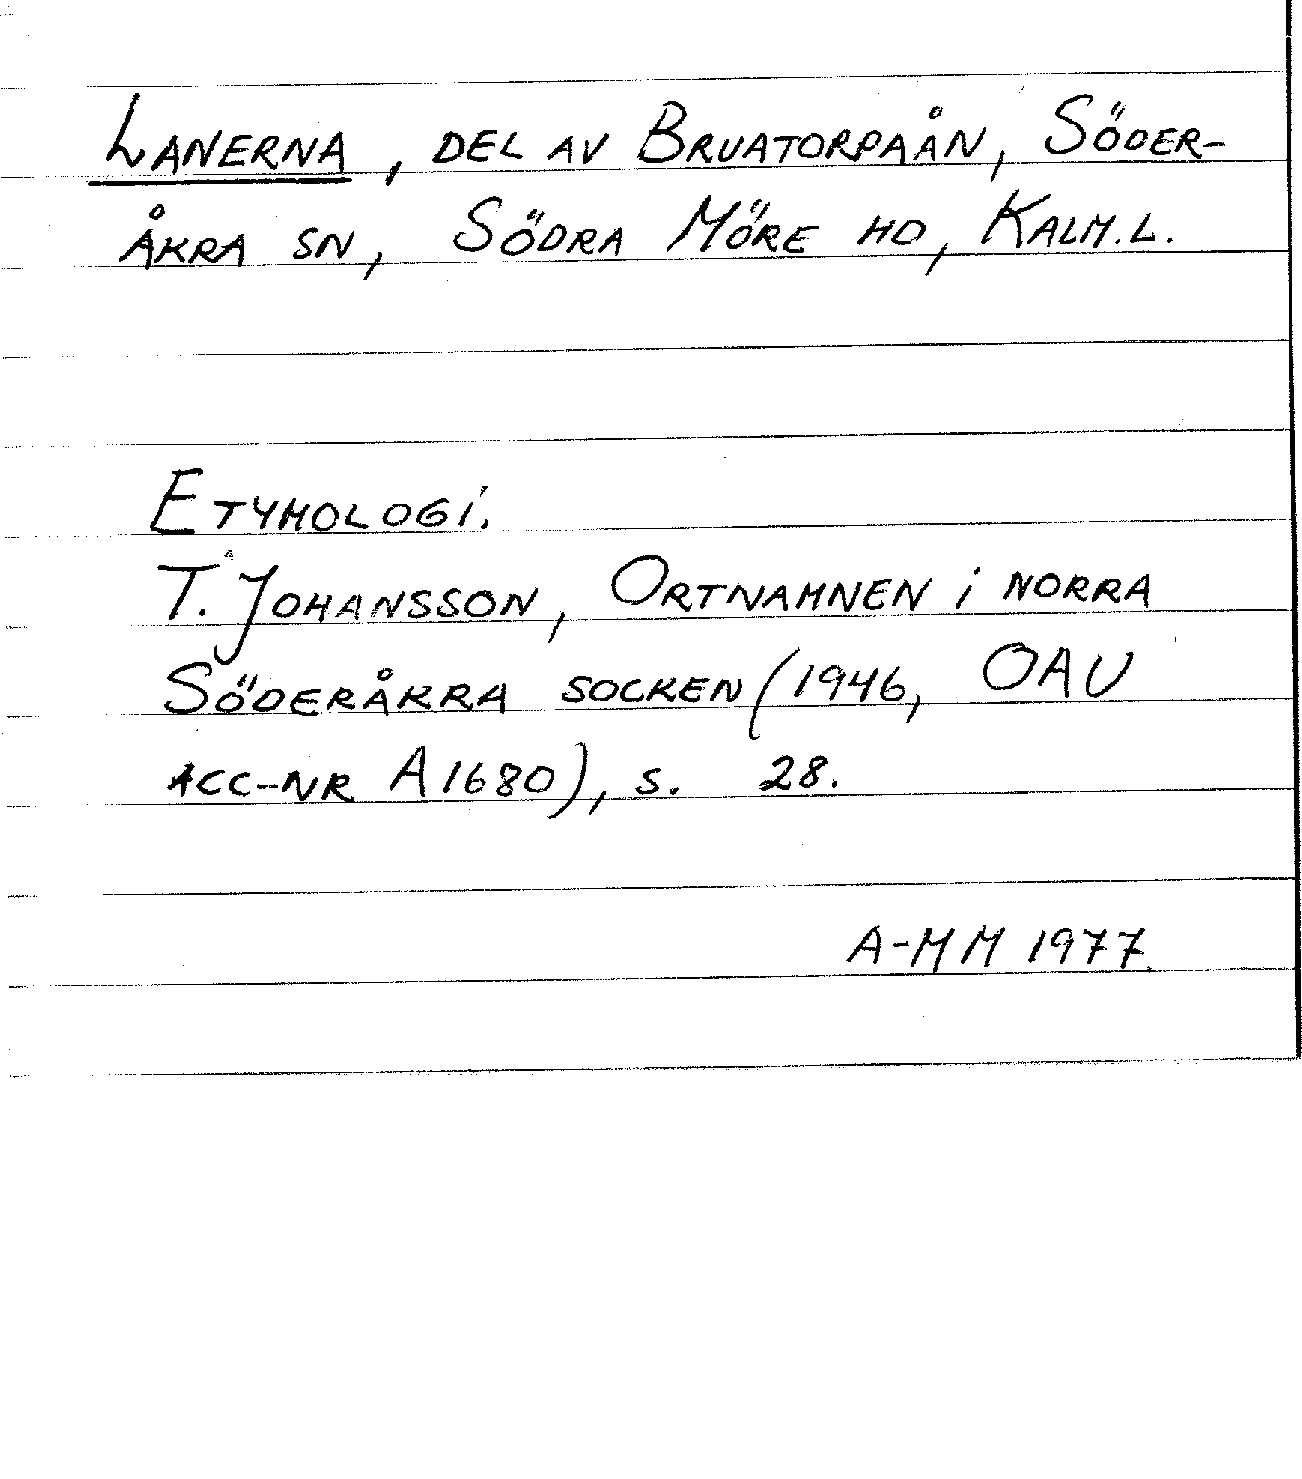 LANERNA, DEL AV BRUATORPAÅN, SÖDER-
ÅKRA SN, SÖDRA MÖRE HD, KALM.L.
ETYMOLOGI.
T. JOHANSSON, ORTNAMNEN I NORRA
SÖDERÅKRA SOCKEN (1946, OAU
ACC-NR A1680), S. 28.
A-MM 1977.